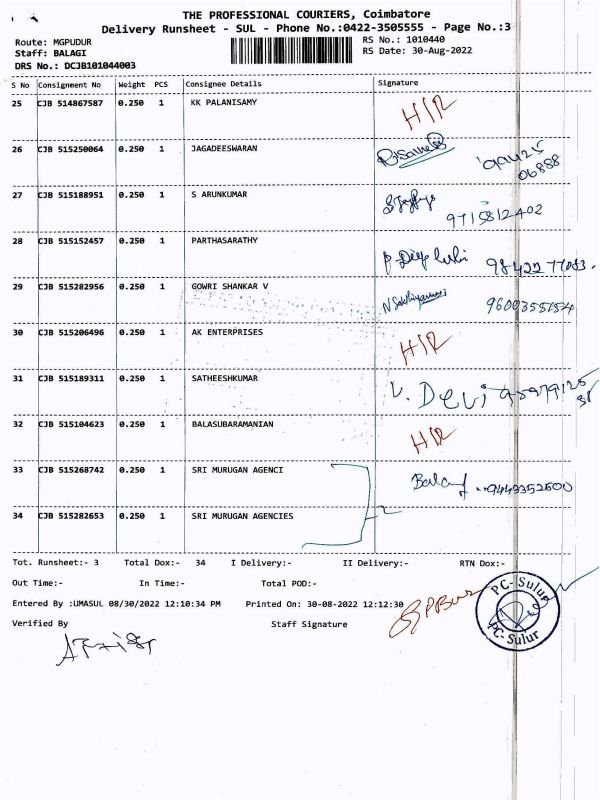 THE PROFESSIONAL COURIERS, Coimbatore
Delivery Runsheet - SUL - Phone No.:0422-3505555 - Page No.:3
Route: MGPUDUR
RS No.: 1010440
Staff: BALAGI
RS Date: 30-Aug-2022
DRS No.: DCJB101044003
S No Consignment No Weight PCS Consignee Details Signature
25 CJB 514867587 0.250 1 KK PALANISAMY H/R
26 CJB 515250064 0.250 1 JAGADEESWARAN 99425
06888
27 CJB 515188951 0.250 1 S ARUNKUMAR 9715812402
28 CJB 515152457 0.250 1 PARTHASARATHY
29 CJB 515282956 0.250 1 GOWRI SHANKAR V
30 CJB 515206496 0.250 1 AK ENTERPRISES H/R
31 CJB 515189311 0.250 1 SATHEESHKUMAR V. Devi
32 CJB 515104623 0.250 1 BALASUBARAMANIAN H/R
33 CJB 515268742 0.250 1 SRI MURUGAN AGENCI 9443352600
34 CJB 515282653 0.250 1 SRI MURUGAN AGENCIES 2
Tot. Runsheet:- 3 Total Dox:- 34 I Delivery:- II Delivery:- RTN Dox:-
Out Time:- In Time:- Total POD:-
Entered By :UMASUL 08/30/2022 12:10:34 PM Printed On: 30-08-2022 12:12:30
Verified By Staff Signature
PC-Sulur
PC-Sulur